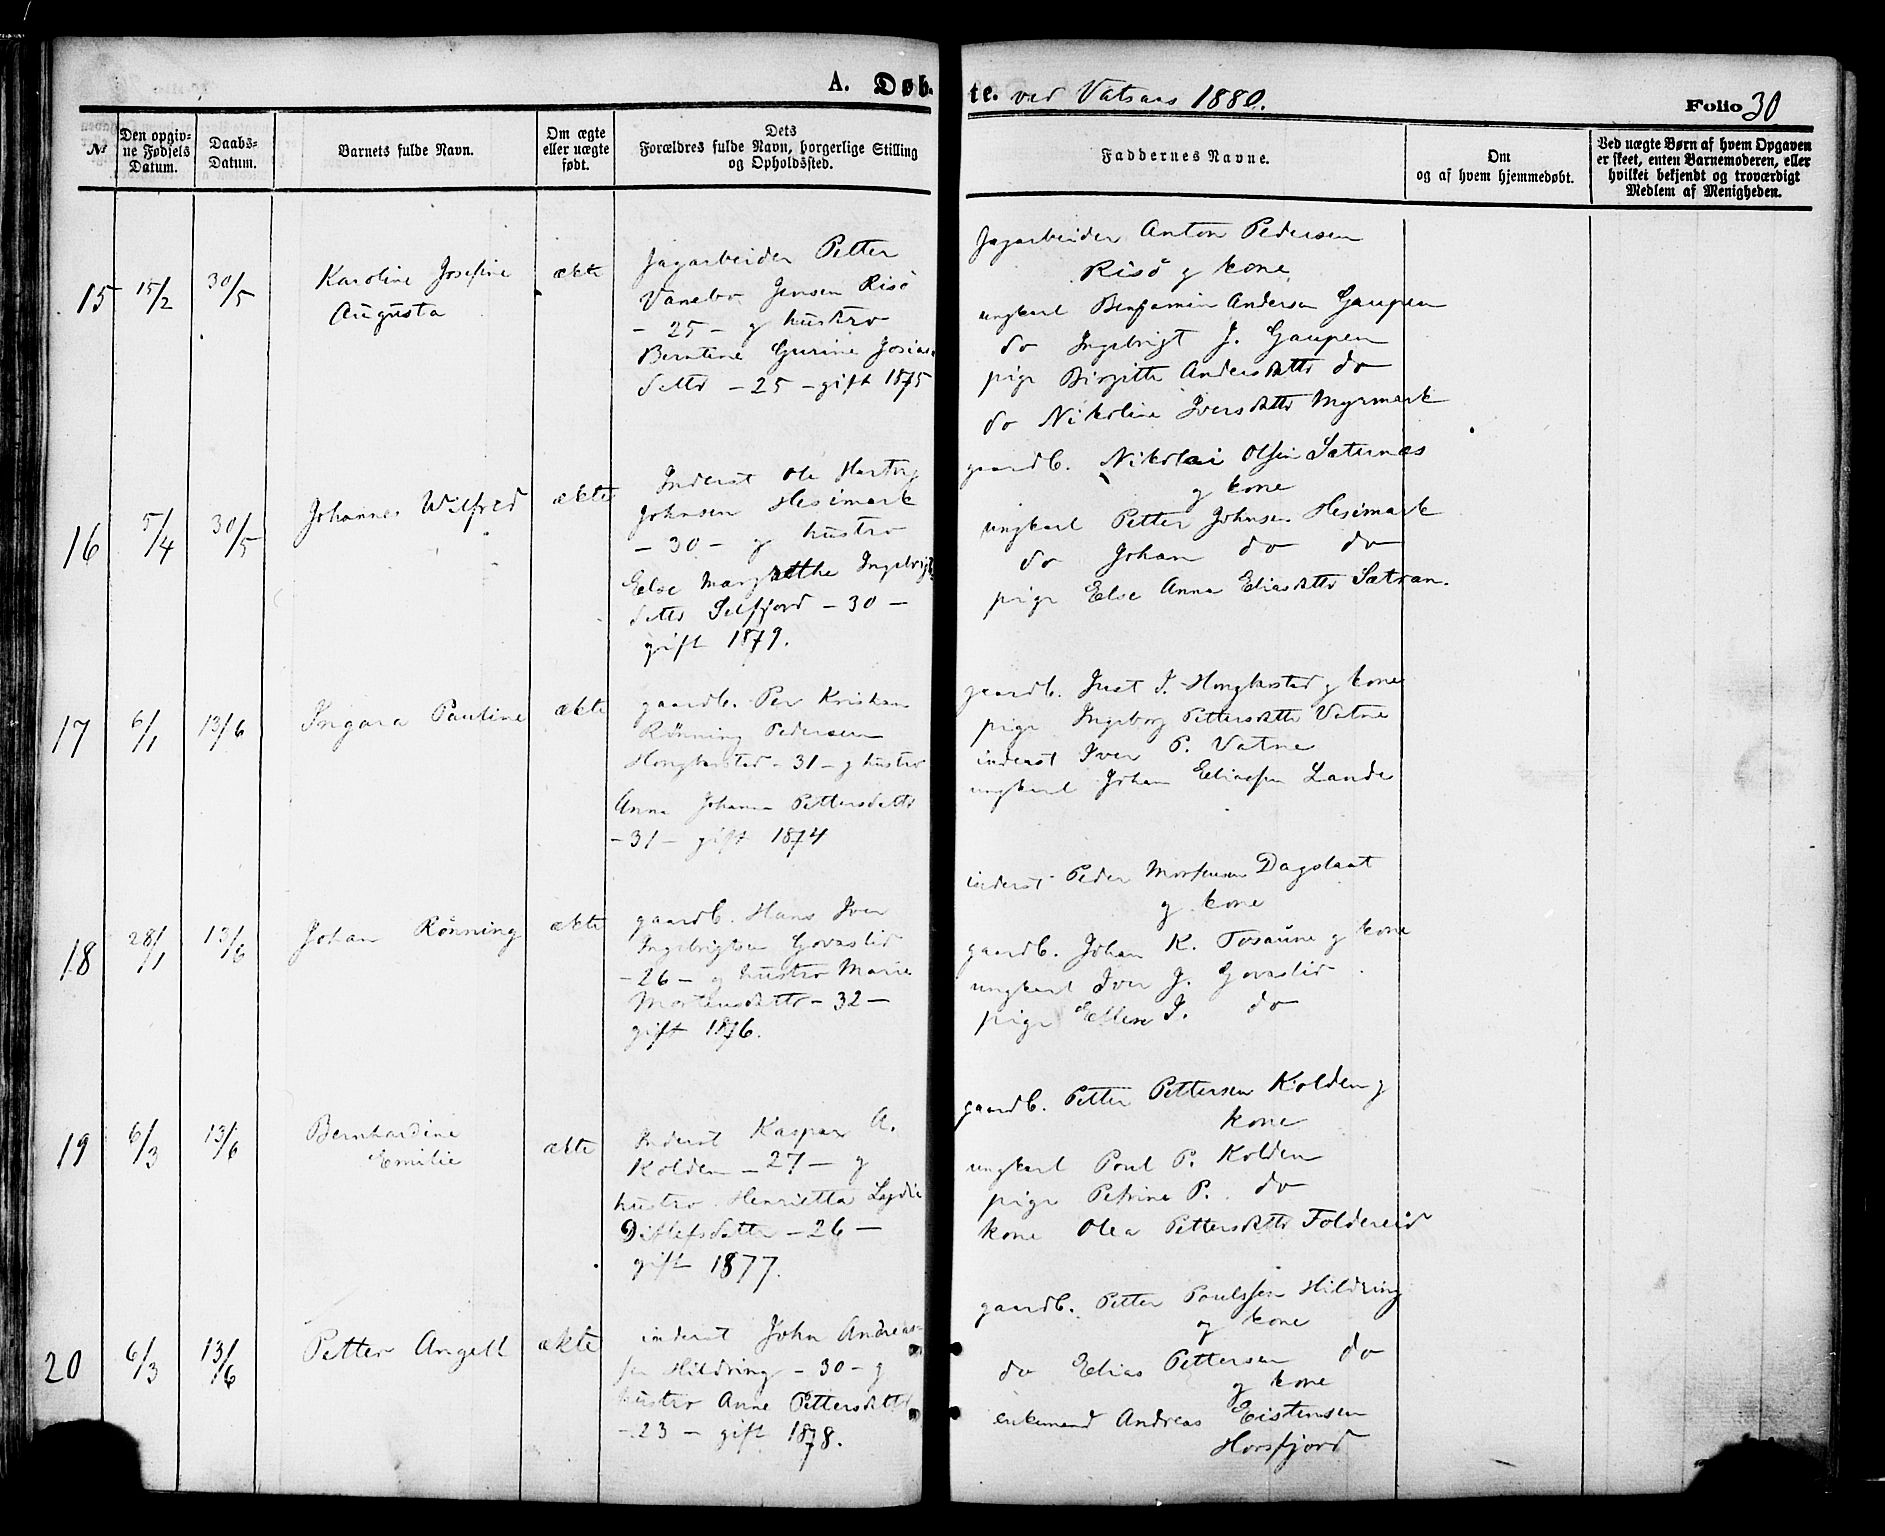 A. Døbte. ved Vatsaas 1880.
Folio 30
№
Den opgiv-
ne Fødsels
Datum.
Daabs-
Datum.
Barnets fulde Navn.
Om ægte
eller uægte
født.
Dets
Forældres fulde Navn, borgerlige Stilling
og Opholdssted.
Faddernes Navne.
Om
og af hvem hjemmedøbt.
Ved uægte Børn af hvem Opgaven
er skeet, enten Barnemoderen, eller
hvilket bekjendt og troværdigt
Medlem af Menigheden.
15
15/2
30/5
Karoline Josefine
Augusta
ækte
Jagarbeider Petter
Vanebo Jensen Risö
- 25 - g hustro
Berntine Gurine Josias
datter - 25 - gift 1875
Jagarbeider Anton Pedersen
Risö g kone
ungkarl Benjamin Andersen Gaupen
do Ingebrigt J. Gaupen
pige Birgitte Andersdatter do
do Nikoline Iversdatter Myrmark
16
5/4
30/5
Johannes Wilfred
ækte
Inderst Ole Hartvig
Johnsen Hesimark
- 30 - g hustro
Else Margrethe Ingebrigts
datter Selfjord - 30 -
gift 1879.
gaardb. Nikolai Olsen Sæternes
g kone
ungkarl Petter Johnsen Hesimark
do Johan do do
pige Else Anna Eliasdatter Sætran.
17
6/1
13/6
Ingara Pauline
ækte
gaardb. Per Kristian
Rønning Pedersen
Hongkasted - 31 - g hustro
Anna Johanna Pettersdatter
- 31 - gift 1874
gaardb. Just J. Hongkasted g kone
pige Ingeborg Pettersdatter Vatne
inderst Iver P. Vatne
ungkarl Johan Eliassen Lande
18
28/1
13/6
Johan Rønning
ækte
gaardb. Hans Iver
Ingebrigtsen Govaslid
- 26 - g hustro Marie
Mortensdatter - 32 -
gift 1876.
inderst Peder Mortensen Dagslaat
g kone
gaardb. Johan K. Tosaune g kone
ungkarl Iver J. Govaslid
pige Ellen J. do
19
6/3
13/6
Bernhardine
Emilie
ækte
Inderst Kaspar A.
Kolden - 27 - g
hustro Henrietta Lydie
Ditlefsdatter - 26 -
gift 1877.
gaardb. Petter Pettersen Kolden g
kone
ungkarl Poul P. Kolden
pige Petrine P. do
kone Olea Pettersdatter Foldereid
20
6/3
13/6
Petter Angell
ækte
inderst John Andreas-
sen Hildring - 30 - g
hustro Anne Pettersdatter
- 23 - gift 1878.
gaardb. Petter Poulssen Hildring
g kone
do Elias Pettersen do
g kone
enkemand Andreas Eistensen
Horsfjord